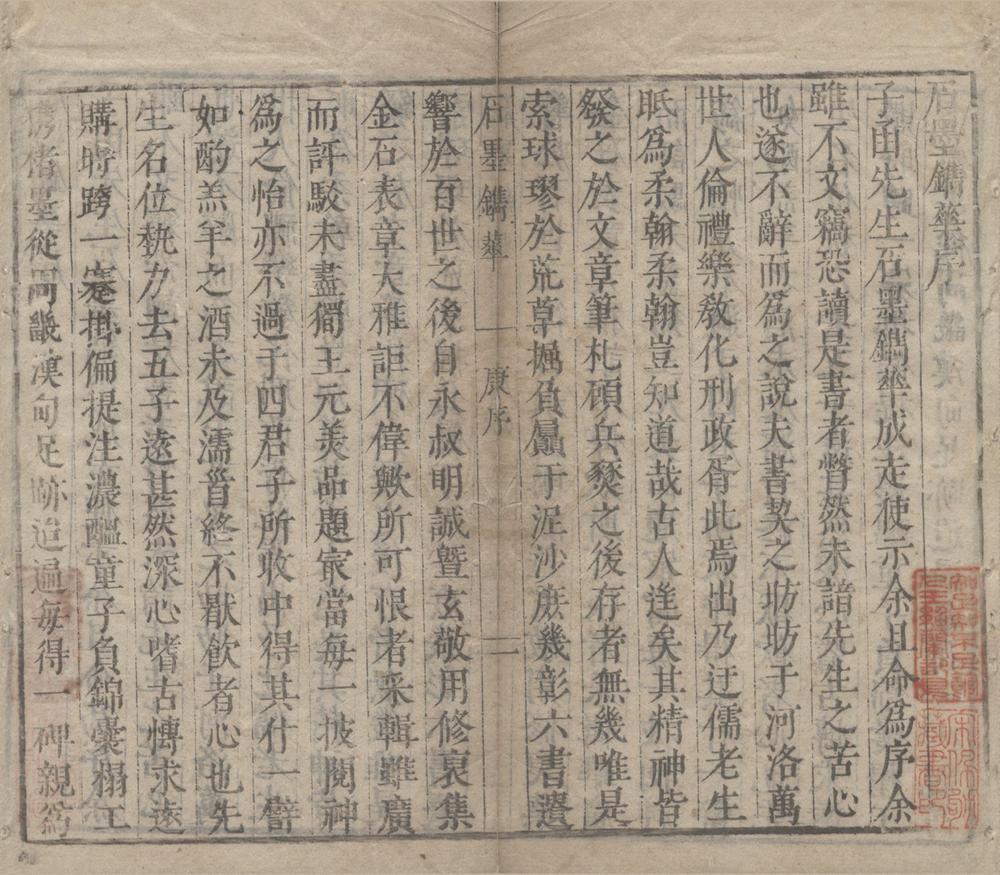 石墨鐫華序
子函先生石墨鐫華成走使示余且命爲序余
雖不文竊恐讀是書者瞥然未諳先生之苦心
也遂不辭而爲之說夫書契之昉昉于河洛萬
世人倫禮樂敎化刑政胥此焉出乃迂儒老生
眡爲柔翰柔翰豈知道哉古人遠矣其精神皆
發之於文章筆札碩兵燹之後存者無幾唯是
索球璆於荒草掘負屭于泥沙庶幾彰六書遺
石墨鐫華 康序 一
響於百世之後自永叔明誠曁玄敬用修裒集
金石表章大雅詎不偉歟所可恨者采輯雖廣
而評駁未盡獨王元美品題宷當每一披閱神
爲之怡亦不過于四君子所收中得其什一譬
如酌羔羊之酒未及濡脣終不厭飮者心也先
生名位埶力去五子遠甚然深心嗜古慱求遠
購時跨一蹇掛偏提注濃醞童子負錦囊搨工
攜楮墨從周畿漢甸足跡迨遍每得一碑親爲